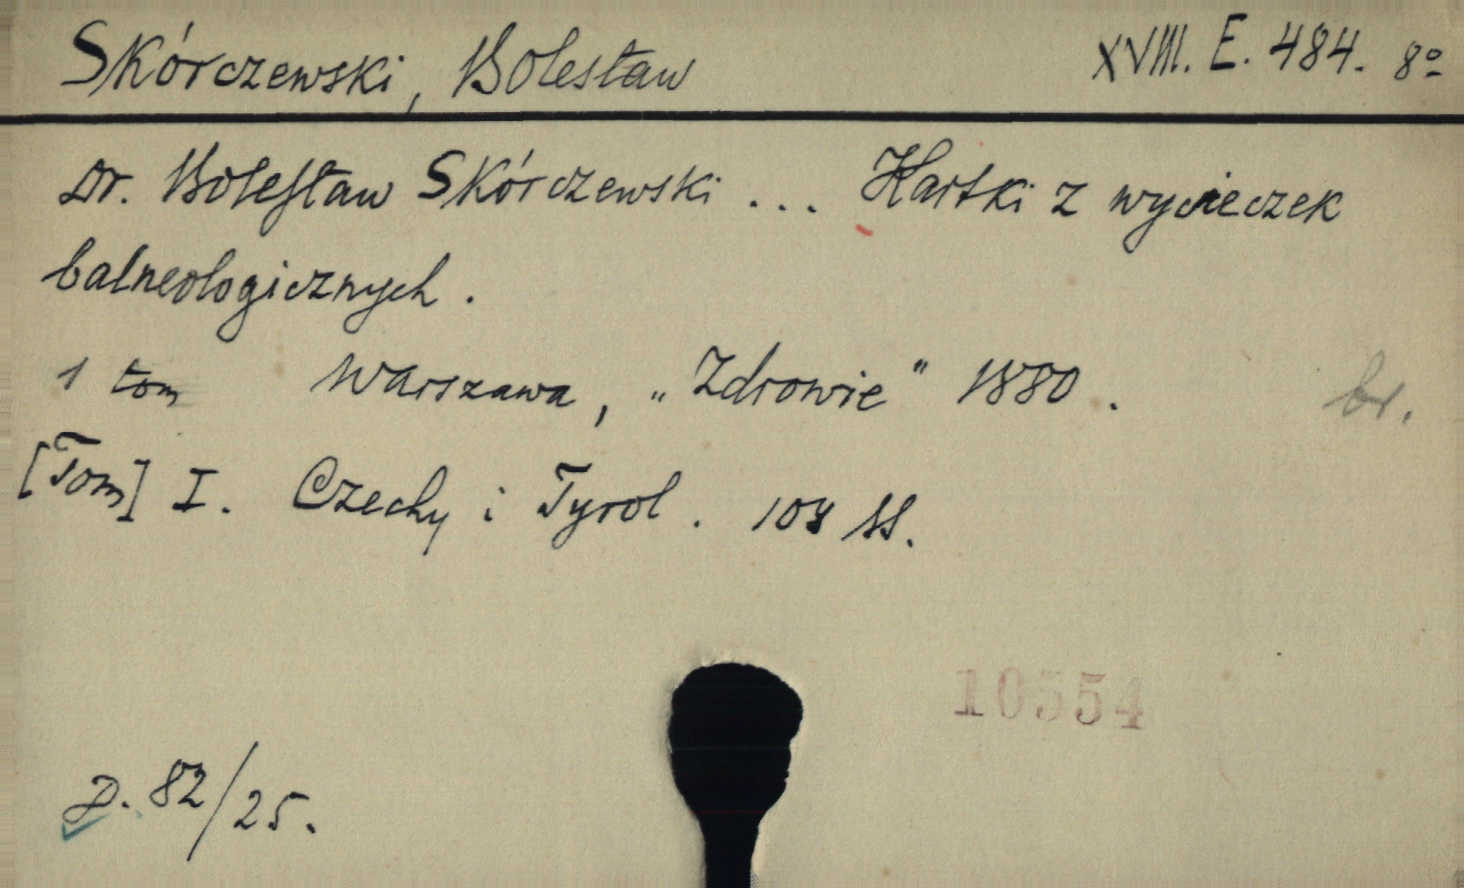 Skórczewski, Bolesław XVIII. E. 484. 8º
Dr. Bolesław Skórczewski ... Kartki z wycieczek
balneologicznych.
1 tom Warszawa, „Zdrowie" 1880. br.
[Tom] I. Czechy i Tyrol. 108 SS.
10554
D. 82/25.